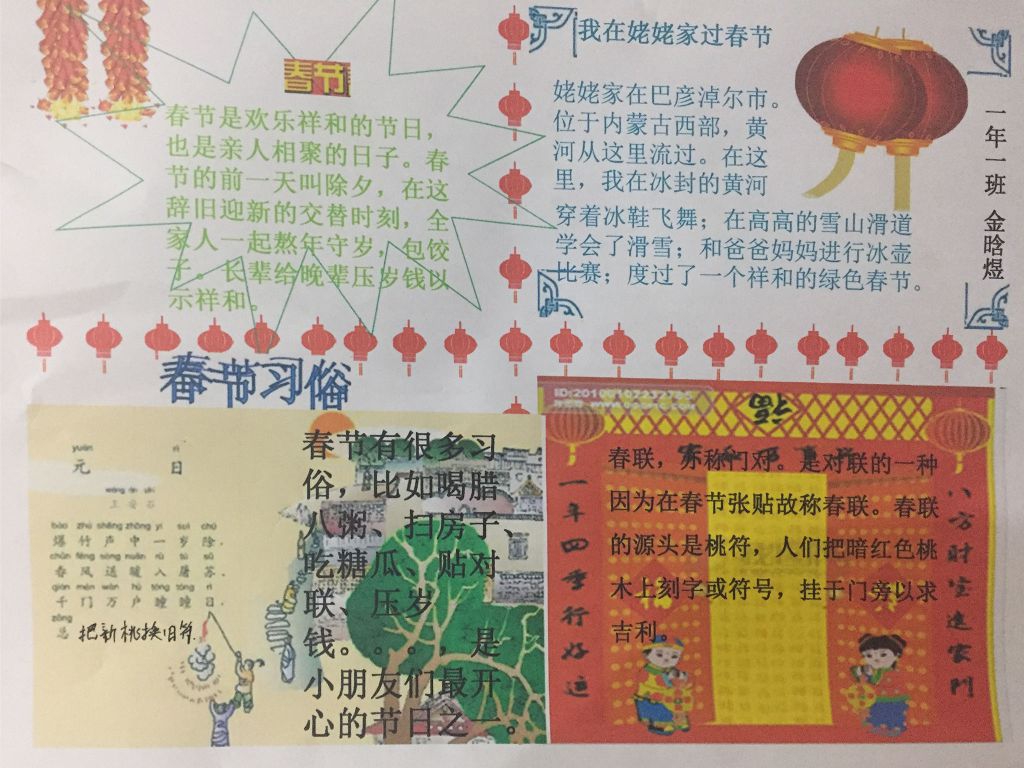 春节
春节是欢乐祥和的节日，
也是亲人相聚的日子。春
节的前一天叫除夕，在这
辞旧迎新的交替时刻，全
家人一起熬年守岁，包饺
子。长辈给晚辈压岁钱以
示祥和。
我在姥姥家过春节
姥姥家在巴彦淖尔市。
位于内蒙古西部，黄
河从这里流过。在这
里，我在冰封的黄河
穿着冰鞋飞舞；在高高的雪山滑道
学会了滑雪；和爸爸妈妈进行冰壶
比赛；度过了一个祥和的绿色春节。
一年一班 金晗煜
春节习俗
yuán rì
元 日
王安石
bào zhú shēng zhōng yí suì chú
爆竹声中一岁除，
chūn fēng sòng nuǎn rù tú sū
春风送暖入屠苏。
qiān mén wàn hù tóng tóng rì
千门万户曈曈日，
zǒng
总 把新桃换旧符
春节有很多习
俗，比如喝腊
八粥、扫房子、
吃糖瓜、贴对
联、压岁
钱。。。，是
小朋友们最开
心的节日之一。
福
一年四季行好运
八方财宝进家门
春联，亦称门对。是对联的一种
因为在春节张贴故称春联。春联
的源头是桃符，人们把暗红色桃
木上刻字或符号，挂于门旁以求
吉利。